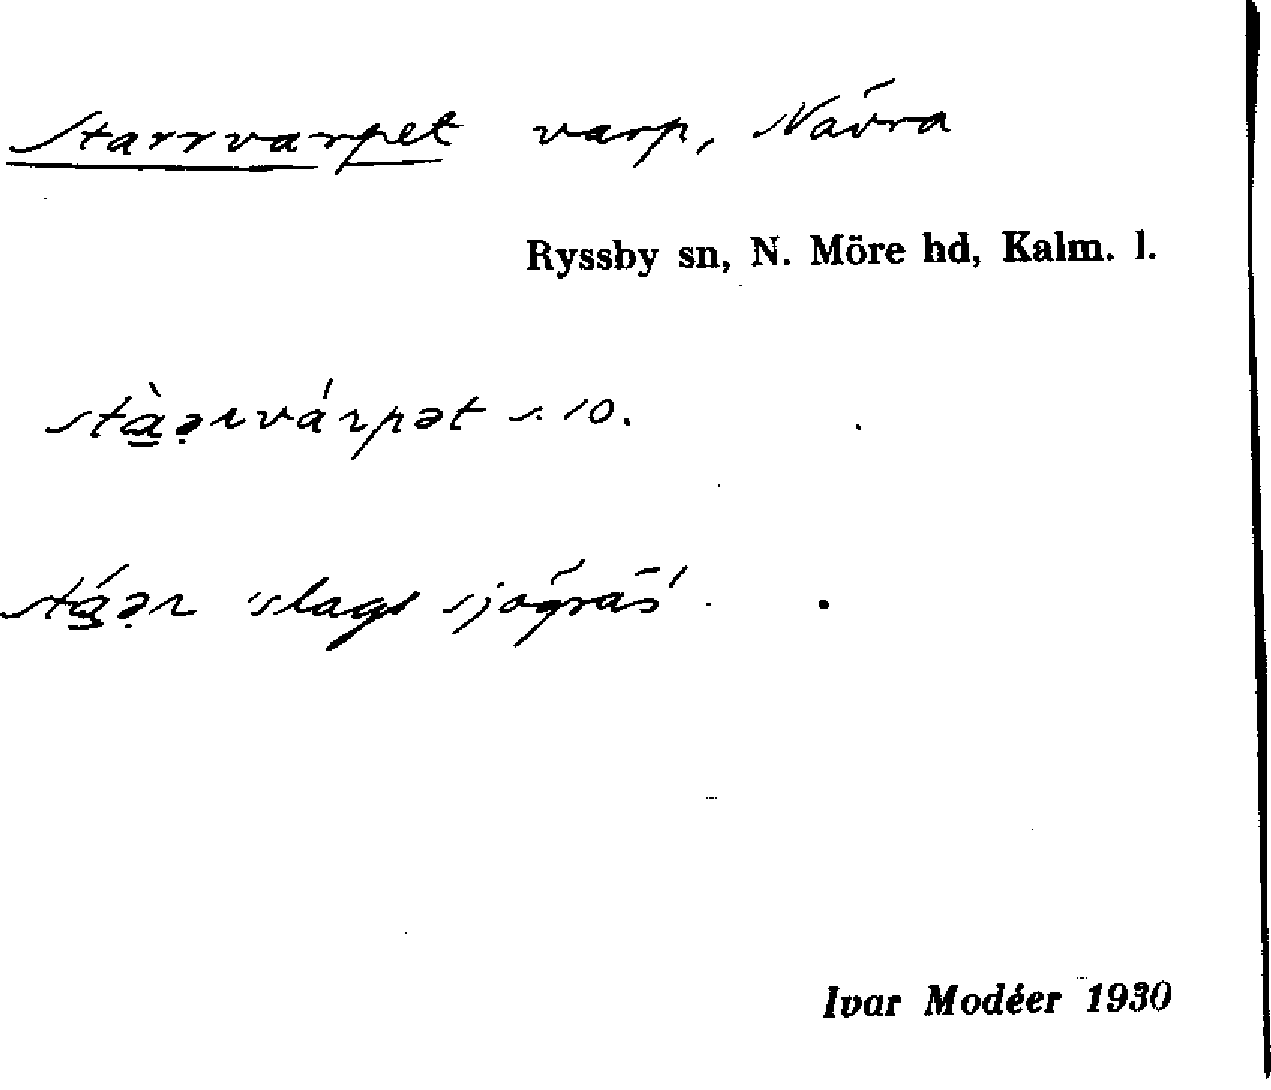 Starrvarpet varp, Nävra
Ryssby sn, N. Möre hd, Kalm. l.
stà̲ə̣rvárpət s. 10.
stá̲ə̣r 'slags sjögräs'.
Ivar Modéer 1930